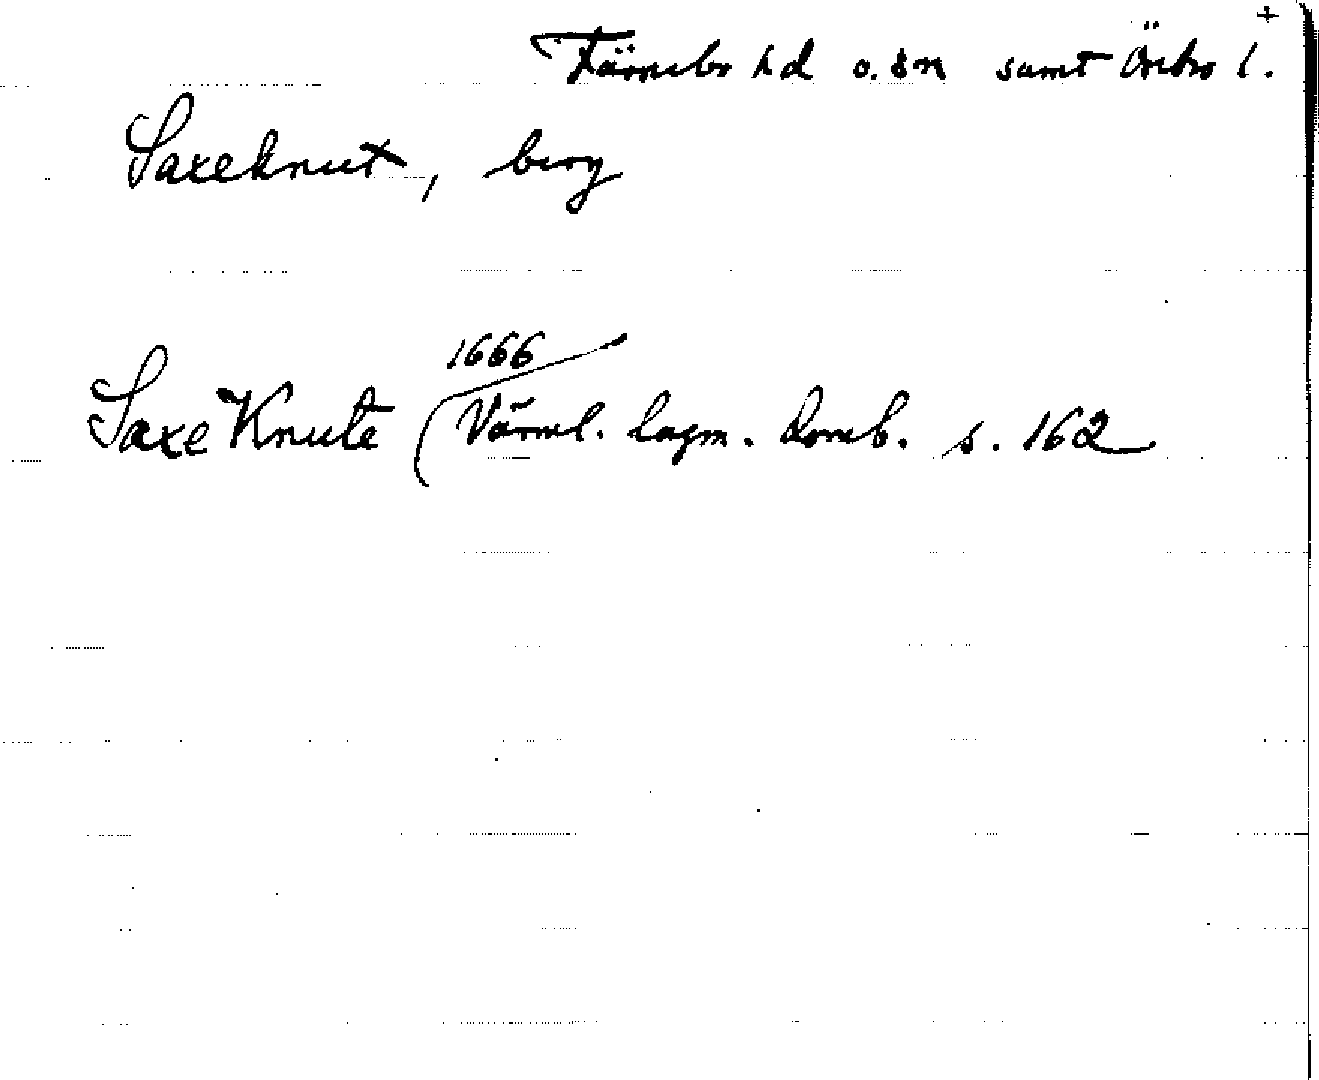 +
Färnebo hd o. sn samt Örebro l.
Saxeknut, berg
1666
Saxe Knute (Värml. lagm. domb. s. 162